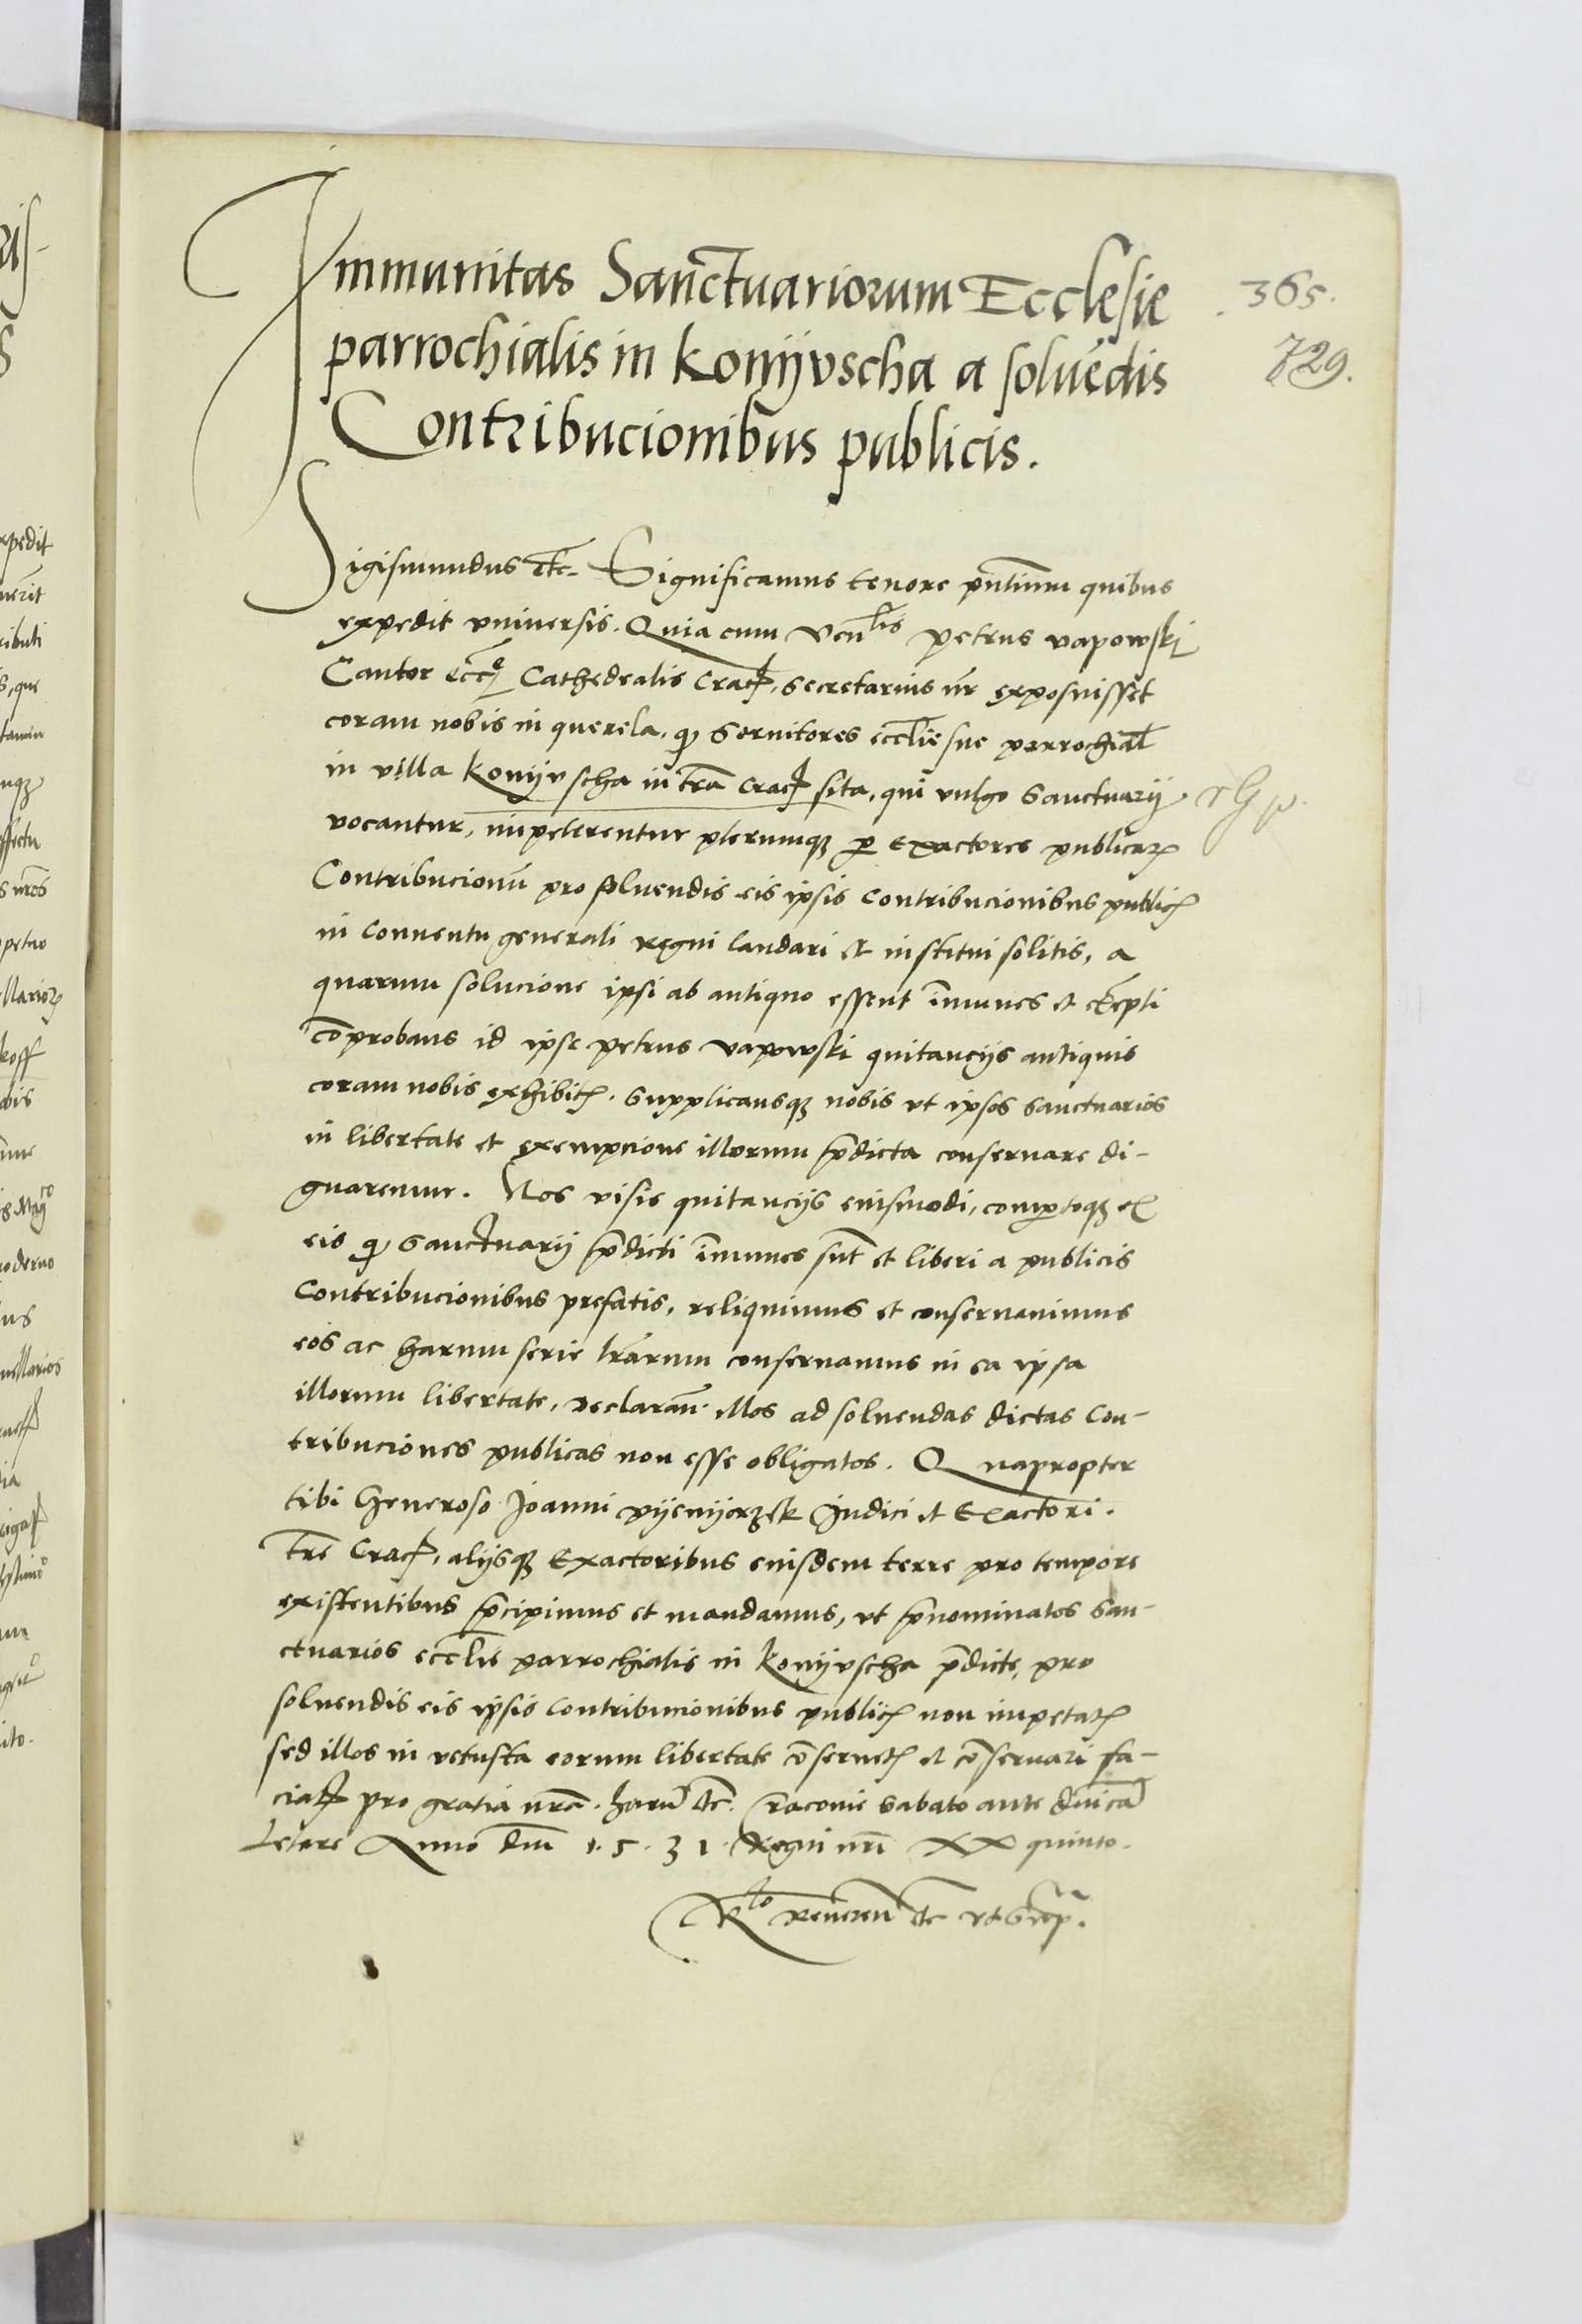 Immunitas Sanctuariorum Ecclesie
parrochialis in Konijvscha a solue᷃dis
Contribucionibus publicis.
365.
729.
Sigismundus etc. Significamus tenore pn̄tium quibus
expedit vniuersis. Quia cum Ven^lis petrus vapowskj
Cantor ecce Cathedralis Crac, Secretarius nr̄ exposuisset
coram nobis in querela, q Seruitores eccl̄ie sue parrochial
in villa Konijvscha in tr̄a Crac sita, qui vulgo Sanctuarij
vocantur, impeterentur plerumqꝫ p Exactores publicaꝝ
Contribucionū pro soluendis eis ipsis Contribucionibus public
in Conuentu generali regni laudari et institui solitis, a
quarum solucione ipsi ab antiquo essent im̄unes et exēpti
cōprobans id ipse petrus vapowski quitancijs antiquis
coram nobis exhibit. Supplicansqꝫ nobis vt ipsos Sanctuarios
in libertate et exempcione illorum p̄dicta conseruare di-
gnaremur. Nos visis quitancijs eiusmodi, compertoqꝫ ex
eis q Sanctuarij p̄dicti im̄unes sūt et liberi a publicis
Contribucionibus prefatis, reliquimus et conseruauimus
eos ac harum serie lr̄arum conseruamus in ea ipsa
illorum libertate, declaran̄ illos ad soluendas dictas Con-
tribuciones publicas non esse obligatos. Quapropter
tibi Generoso Joanni pijenijorzek Judici et Exactori
tr̄e Crac, alijsqꝫ Exactoribus eiusdem terre pro tempore
existentibus p̄cipimus et mandamus, vt p̄nominatos San-
ctuarios eccl̄ie parrochialis in Konijvscha p̄dicte, pro
soluendis eis ipsis Contribucionibus public non impetat
sed illos in vetusta eorum libertate cōseruet et cōseruari fa-
ciat pro gratia nr̄a. harū etc. Cracouie Sabato ante dn̄icā
Letare Anno dn̄i 1.5.31. Regni nr̄i XX quinto.
R^lo Reueren̄ etc vt Supra.